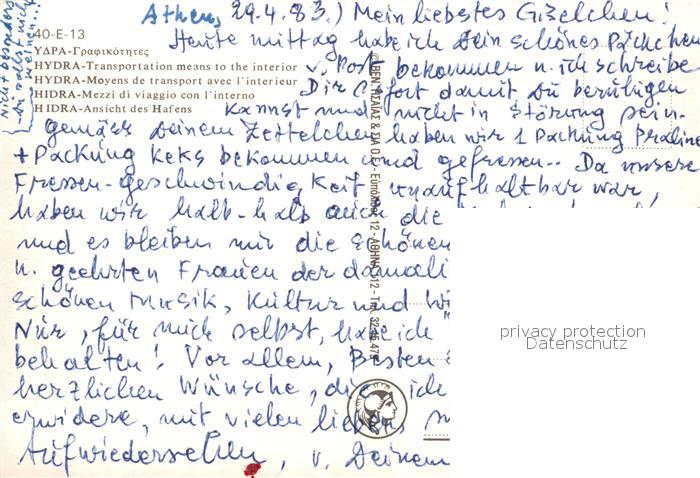 Athen, 29.4.83.) Mein liebstes Giselchen!
40-E-13
Heute mittag habe ich Dein schönes Päckchen
ΥΔΡΑ-Γραφικότητες
HYDRA-Transportation means to the interior
v. Post bekommen u. ich schreibe
HYDRA-Moyens de transport avec l'interieur
HIDRA-Mezzi di viaggio con l'interno
Dir sofort damit Du beruhigen
HIDRA-Ansicht des Hafens
kannst und nicht in Störung sein.
gemäss Deinem Zettelchen haben wir 1 Packung Praline
+ Packung Keks bekommen und gefressen.. Da unsere
Fressen-geschwindigkeit unaufhaltbar war,
haben wir halb-halb auch die
und es bleiben mir die schönen
u. geehrten Frauen der damali
schönen Musik, Kultur und
Nur, für mich selbst, habe ich
behalten! Vor allem, Besten
herzlichen Wünsche, die ich
erwidere, mit vielen lieben,
Aufwiedersehen, v. Deinem
nicht
privacy protection
Datenschutz